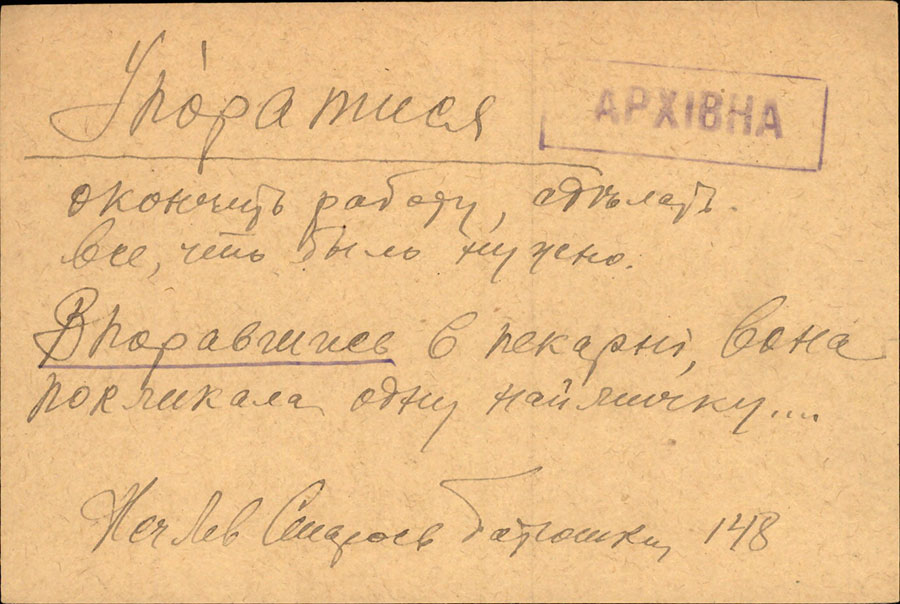 Упо́ратися
АРХІВНА
окончить работу, сдѣлать
все, что было нужно.
Впоравшись в пекарні, вона
покликала одну наймичку....
Неч Лев Старосв батюшки, 148